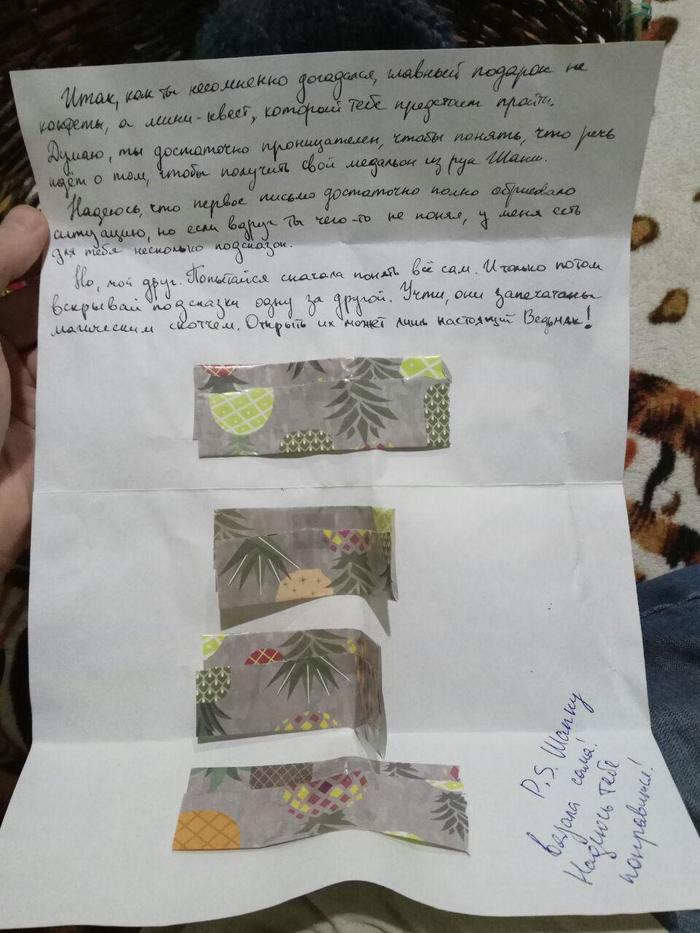 Итак, как ты несомненно догадался, главный подарок не
конфеты, а мини-квест, который тебе предстоит пройти.
Думаю, ты достаточно проницателен, чтобы понять, что речь
идёт о том, чтобы получить свой медальон из рук Шани.
Надеюсь, что первое письмо достаточно полно обрисовало
ситуацию, но если вдруг ты чего-то не понял, у меня есть
для тебя несколько подсказок.
Но, мой друг. Попытайся сначала понять всё сам. И только потом
вскрывай подсказки одну за другой. Учти, они запечатаны
магическим скотчем. Открыть их может лишь настоящий Ведьмак!
P.S. Шапку
вязала сама!
Надеюсь тебе
понравится!